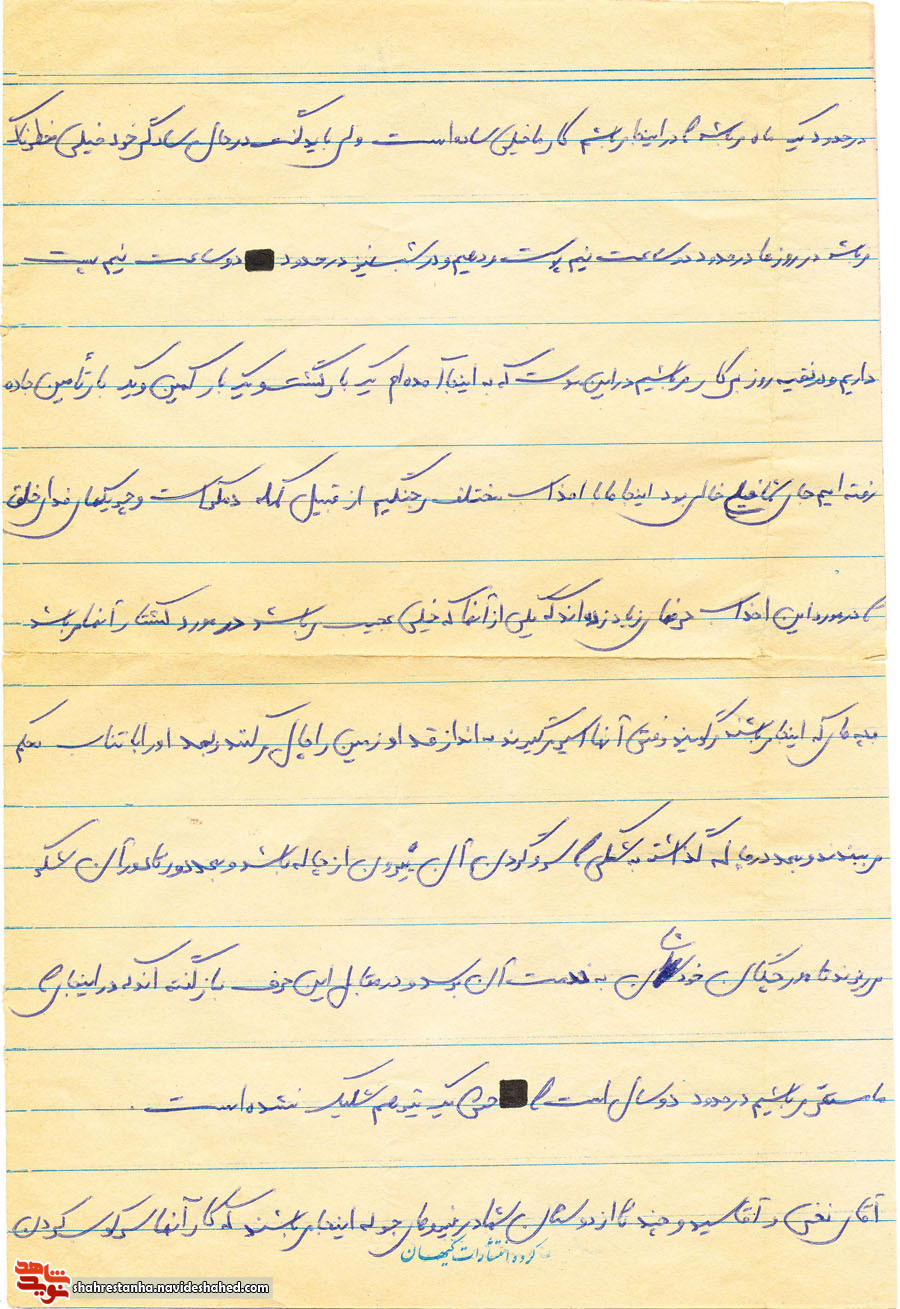 در حدود یک ماه میباشد که در اینجا میباشم کار ما خیلی ساده است ولی باید گفت در حال سادگی خود خیلی خطرناک
میباشد در روزها در حدود دو ساعت نیم پست میدهیم و در شب نیز در حدود دو ساعت نیم پست
داریم و در بقیه روز بی کار میباشیم در این مدت که به اینجا آمده‌ام یک بار گشت و یک بار کمین و یک بار تأمین جاده
رفته ایم جای شما خیلی خالی بود اینجا ما با احزاب مختلف میجنگیم از قبیل کمله دمکرات و چریکهای فدای خلق
که در مورد این احزاب حرفهای زیاد زده‌اند که یکی از آنها که خیلی عجیب میباشد در مورد کشتار آنها میباشد
بچه های که اینجا میباشند میگویند وقتی آنها اسیر میگیرند به انداز قد او زمین را چال میکنند و بعد او را با تناب محکم
میبندند و بعد در چاله گذاشته به شکلی که سر و گردن آن بیرون از چاله باشد و بعد دور تا دور آن
میریزند تا خودشان به خدمت آن برسد و در مقابل این حرف باز گفته آنوکه در اینجای که
ما مستقر میباشیم در حدود دو سال است که حتی یک تیر هم شلیک نشده است .
آقای نخعی و آقا سید و چند تا از دوستان شما در نیروهای جوله اینجا میباشند که کار آنها سرکوب کردن
گروه انتشارات کیهان
نوید شاهد
shahrestanha.navideshahed.com